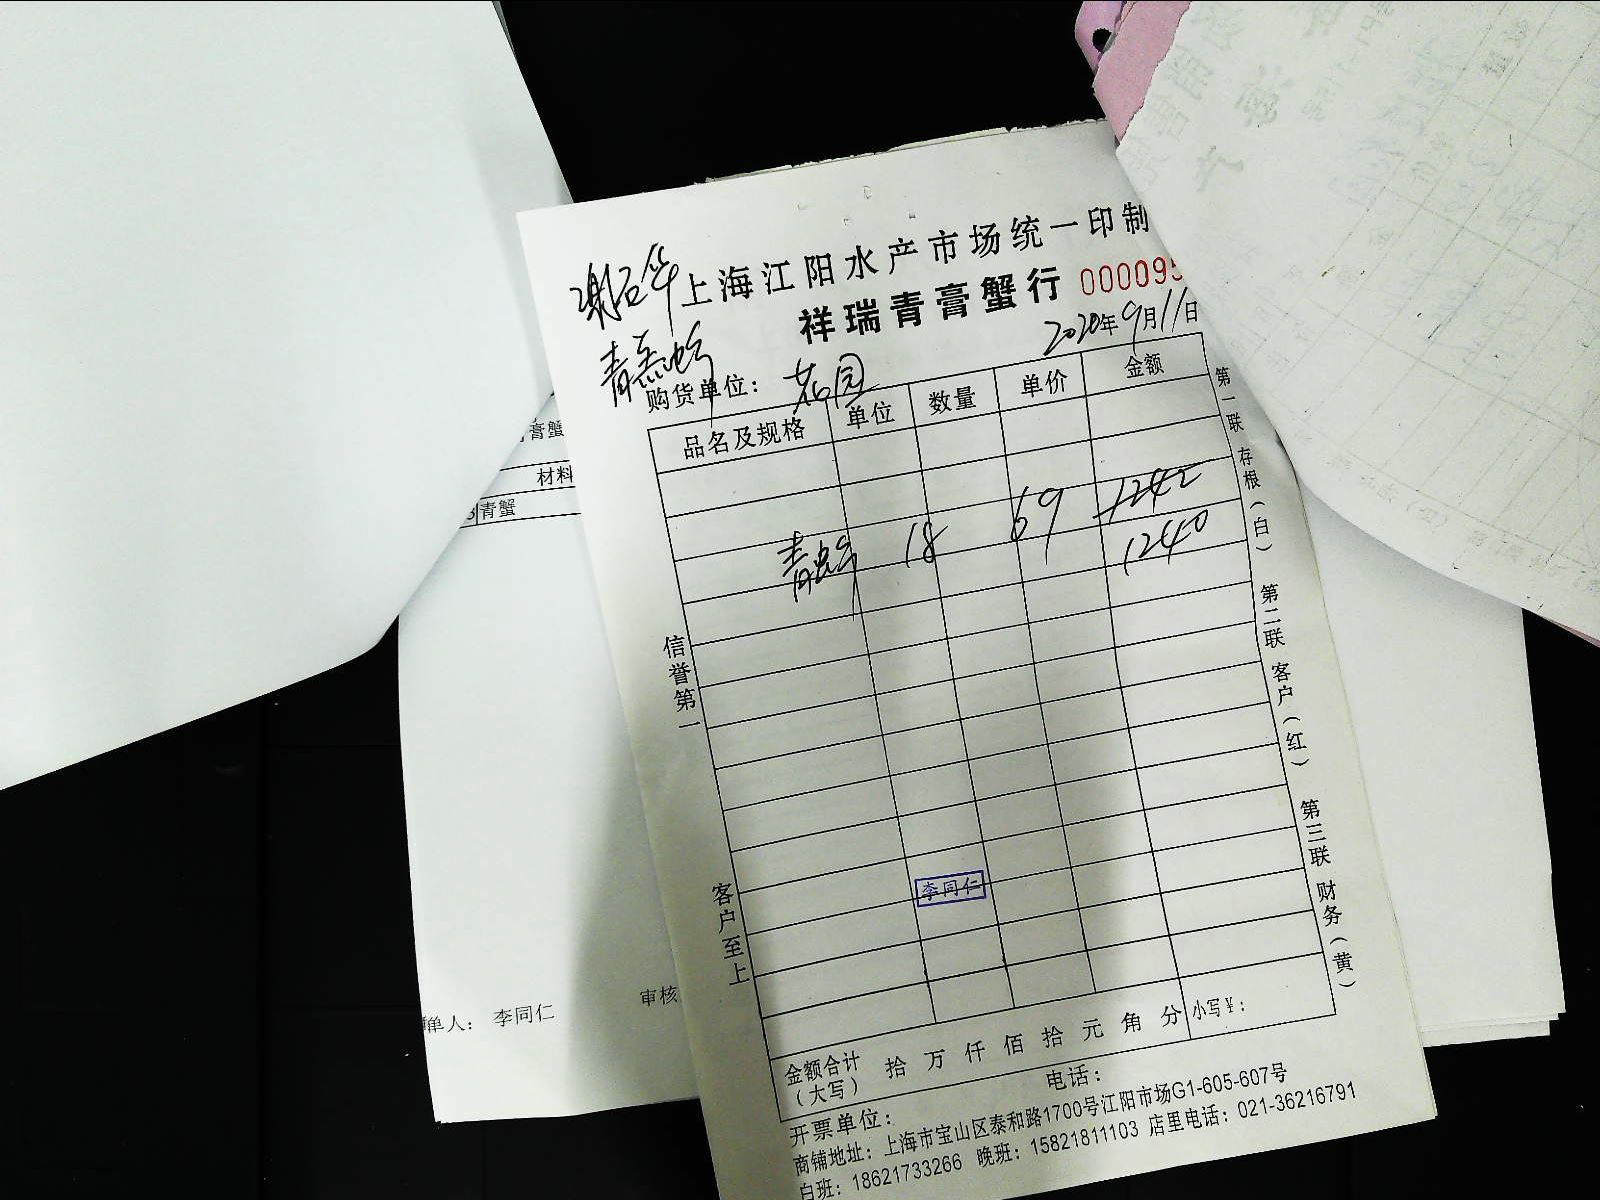 上海江阳水产市场统一印制
祥瑞青膏蟹行 000095
2020年9月11日
购货单位：
品名及规格 单位 数量 单价 金额
青蟹 18 69 1242
1240
信誉第一
客户至上
第一联 存根（白）
第二联 客户（红）
第三联 财务（黄）
李同仁
金额合计（大写） 拾 万 仟 佰 拾 元 角 分 小写¥：
开票单位： 电话：
商铺地址：上海市宝山区泰和路1700号江阳市场G1-605-607号
白班：18621733266 晚班：15821811103 店里电话：021-36216791
膏蟹
材料
青蟹
单人： 李同仁
审核